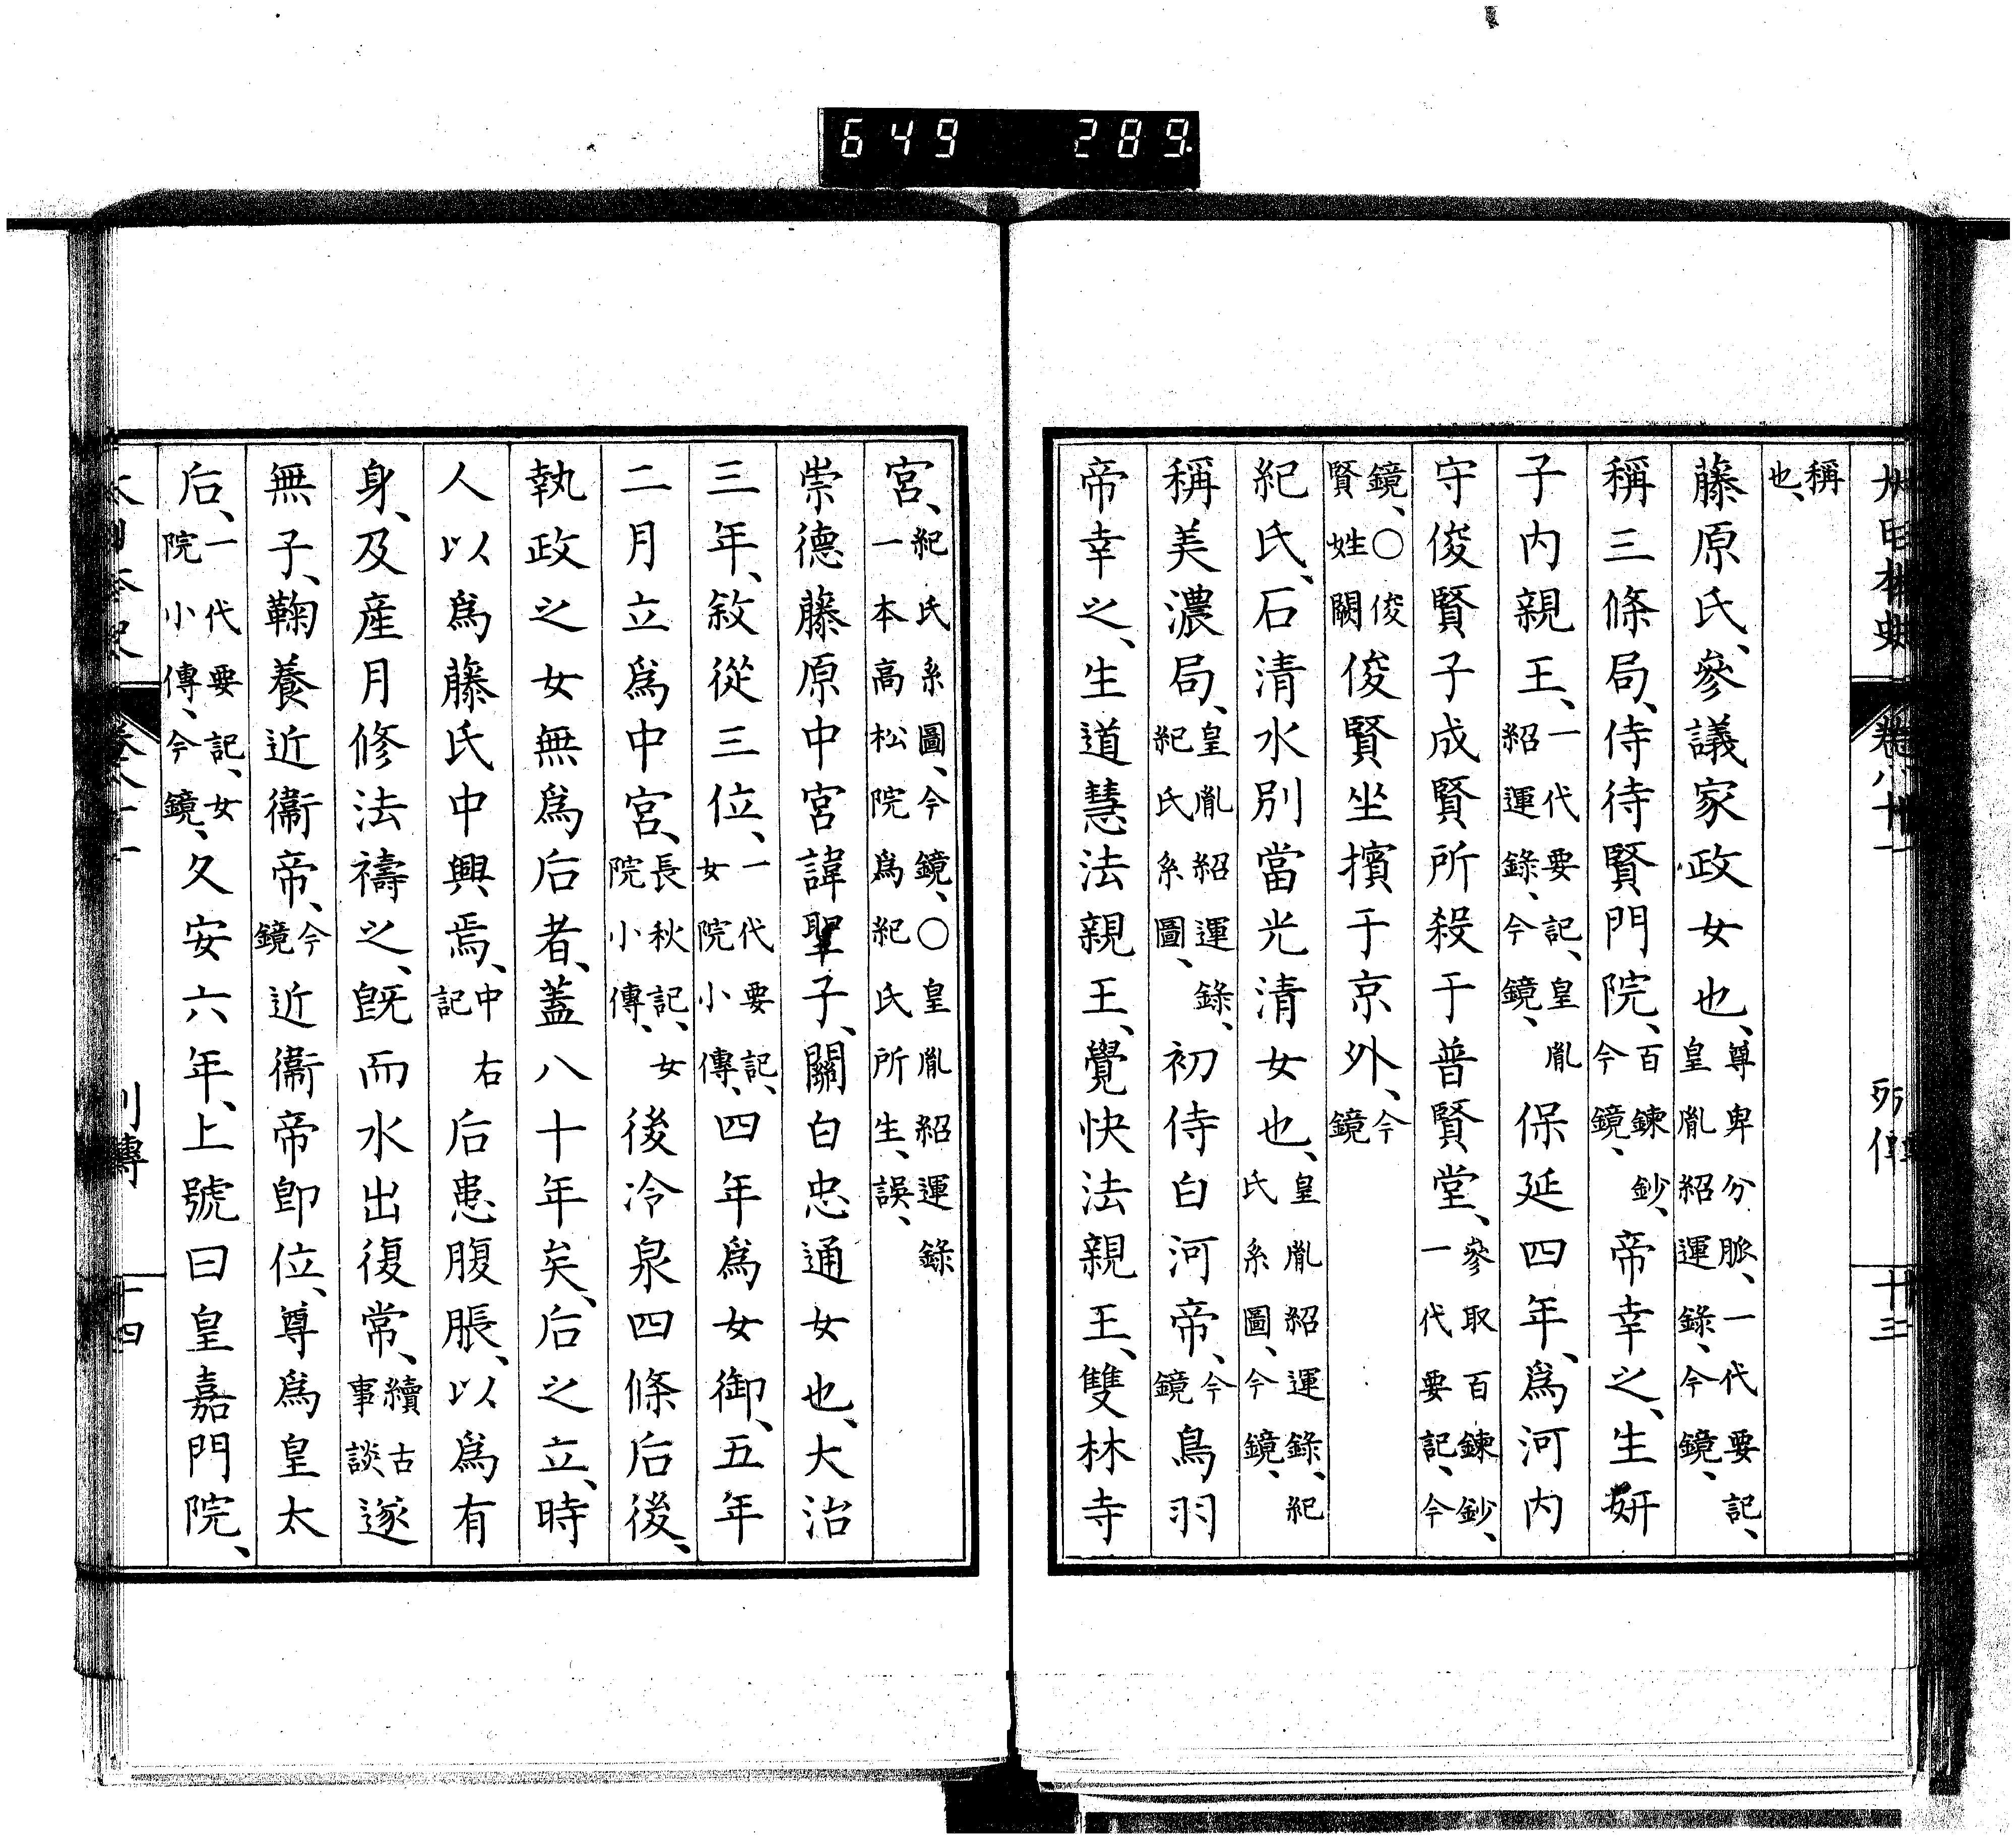 649 289.
大日本史 卷八十一 列傳 十三
稱也、
藤原氏、參議家政女也、尊卑分脈、一代要記、皇胤紹運錄、今鏡、
稱三條局、侍待賢門院、百鍊鈔、今鏡、帝幸之、生妍
子内親王、一代要記、皇胤紹運錄、今鏡、保延四年、爲河内
守俊賢子成賢所殺于普賢堂、參取百鍊鈔、一代要記、今
鏡、〇俊賢姓闕俊賢坐擯于京外、今鏡
紀氏、石清水別當光清女也、皇胤紹運錄、紀氏系圖、今鏡、
稱美濃局、皇胤紹運錄、紀氏系圖、初侍白河帝、今鏡鳥羽
帝幸之、生道慧法親王、覺快法親王、雙林寺
宮、紀氏系圖、今鏡、〇皇胤紹運錄一本高松院爲紀氏所生、誤、
崇德藤原中宮諱聖子、關白忠通女也、大治
三年、敘從三位、一代要記、女院小傳、四年爲女御、五年
二月立爲中宮、長秋記、女院小傳、後冷泉四條后後、
執政之女無爲后者、蓋八十年矣、后之立、時
人以爲藤氏中興焉、中右記后患腹脹、以爲有
身、及產月修法禱之、旣而水出復常、續古事談遂
無子、鞠養近衞帝、今鏡近衞帝卽位、尊爲皇太
后、一代要記、女院小傳、今鏡、久安六年、上號曰皇嘉門院、
列傳 十四